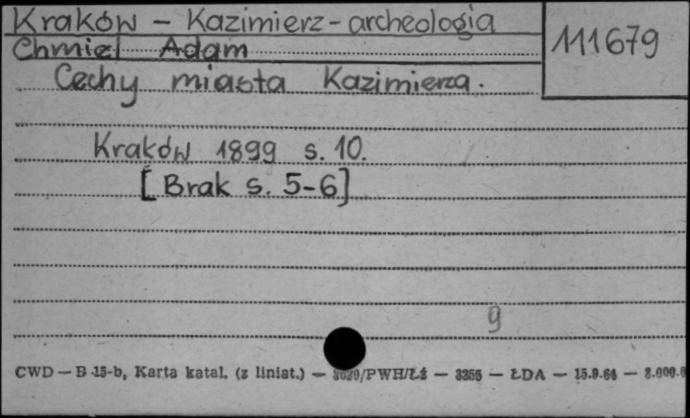 Kraków - Kazimierz - archeologia
111679
Chmiel Adam
Cechy miasta Kazimierza.
Kraków 1899 s. 10.
[Brak s. 5-6]
9
CWD — B 15-b, Karta katal. (z liniat.) — /PWH/Łź — 3255 — ŁDA — 15.9.64 —